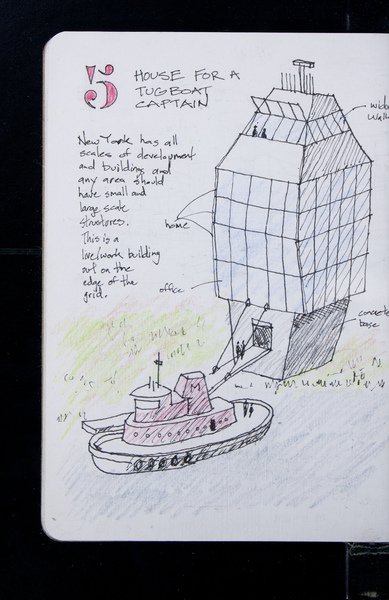 5
HOUSE FOR A
TUGBOAT
CAPTAIN
New York has all
scales of development
and buildings and
any area should
have small and
large scale
structures.
This is a
live/work building
out on the
edge of the
grid.
home
office
M